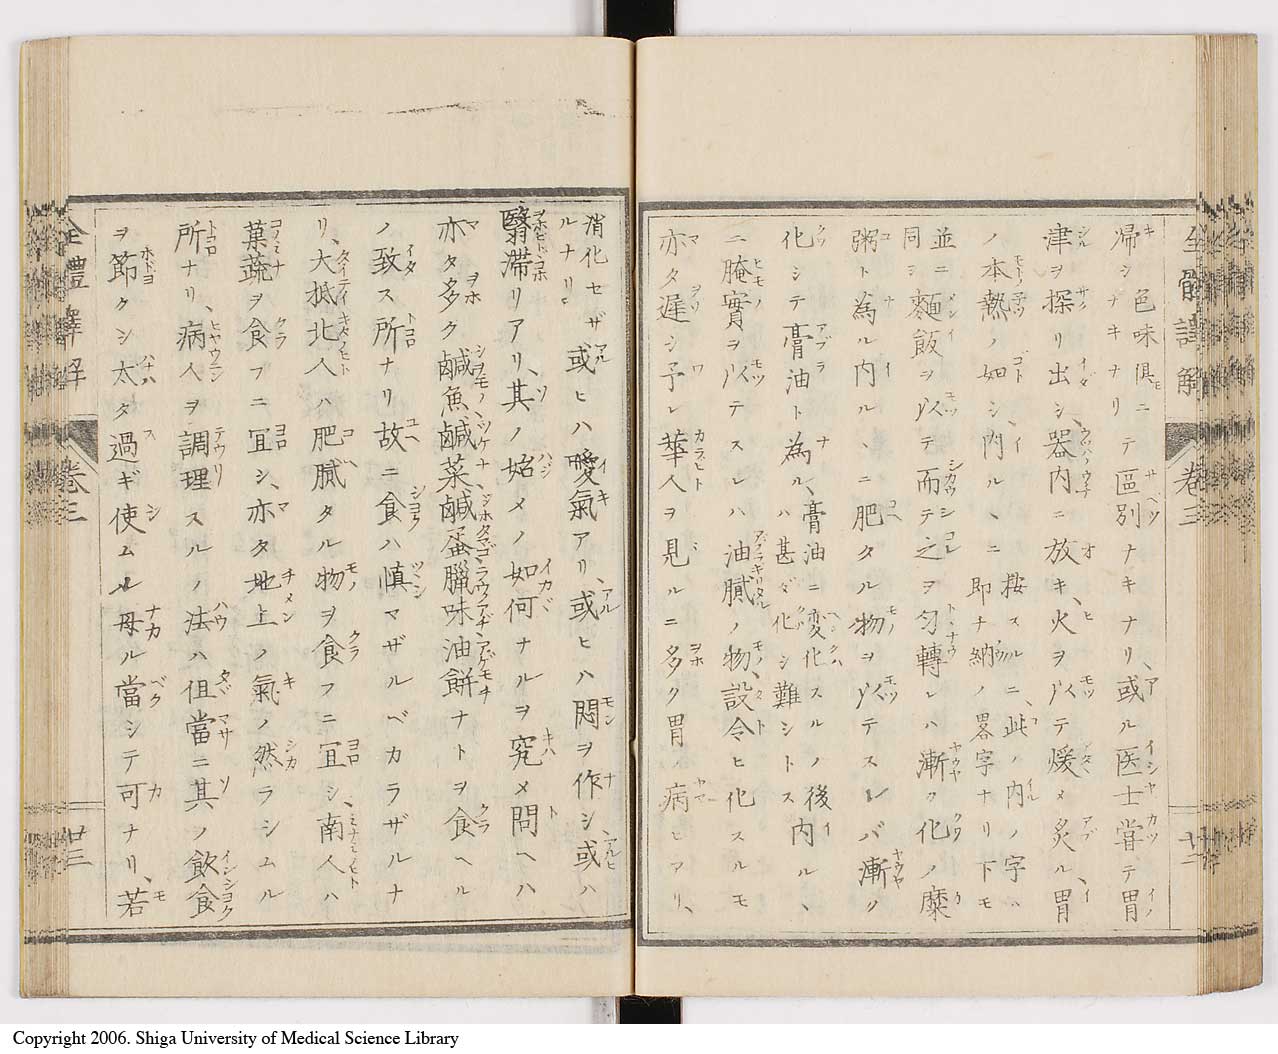 帰シナキナリ色味俱ニテ區別ナキナリ、或ル医士甞テ胃
津ヲ探リ出シ器内ニ放キ、火ヲ以テ煖メ炙ル、胃
ノ本熱ノ如シ、内ルヽニ按スルニ、此ノ内ノ字ハ即ナ納ノ畧字ナリ下モ
並ニ同シ麵飯ヲ以テ而テ之ヲ匀轉レハ漸ク化ノ糜
粥ト為ル内ルヽニ肥タル物ヲ以テスレバ漸ク
化シテ膏油ト為ル、膏油ニ変化スルノ後内ルヽハ甚ダ化シ難シトス
ニ腌實ヲ以テスレハ油膩ノ物、設令ヒ化スルモ
亦タ遅シ予レ華人ヲ見ルニ多ク胃病ヒアリ、
消化セザルナリ或ヒハ噯氣アリ、或ヒハ悶ヲ作シ、或ハ
翳滞リアリ、其ノ始メノ如何ナルヲ究メ問ヘハ
亦タ多ク鹹魚鹹菜鹹蛋臘味油餅ナトヲ食ヘル
ノ致ス所ナリ故ニ食ハ慎マザルベカラザルナ
リ、大抵北人ハ肥膩タル物ヲ食フニ宜シ、南人ハ
菓蔬ヲ食フニ宜シ、亦タ地上ノ氣ノ然ラシムル
所ナリ、病人ヲ調理スルノ法ハ但當ニ其ノ飲食
ヲ節クシ太タ過ギ使ムル毋ル當シテ可ナリ、若
全體譯解
卷三
廿三
Copyright 2006. Shiga University of Medical Science Library